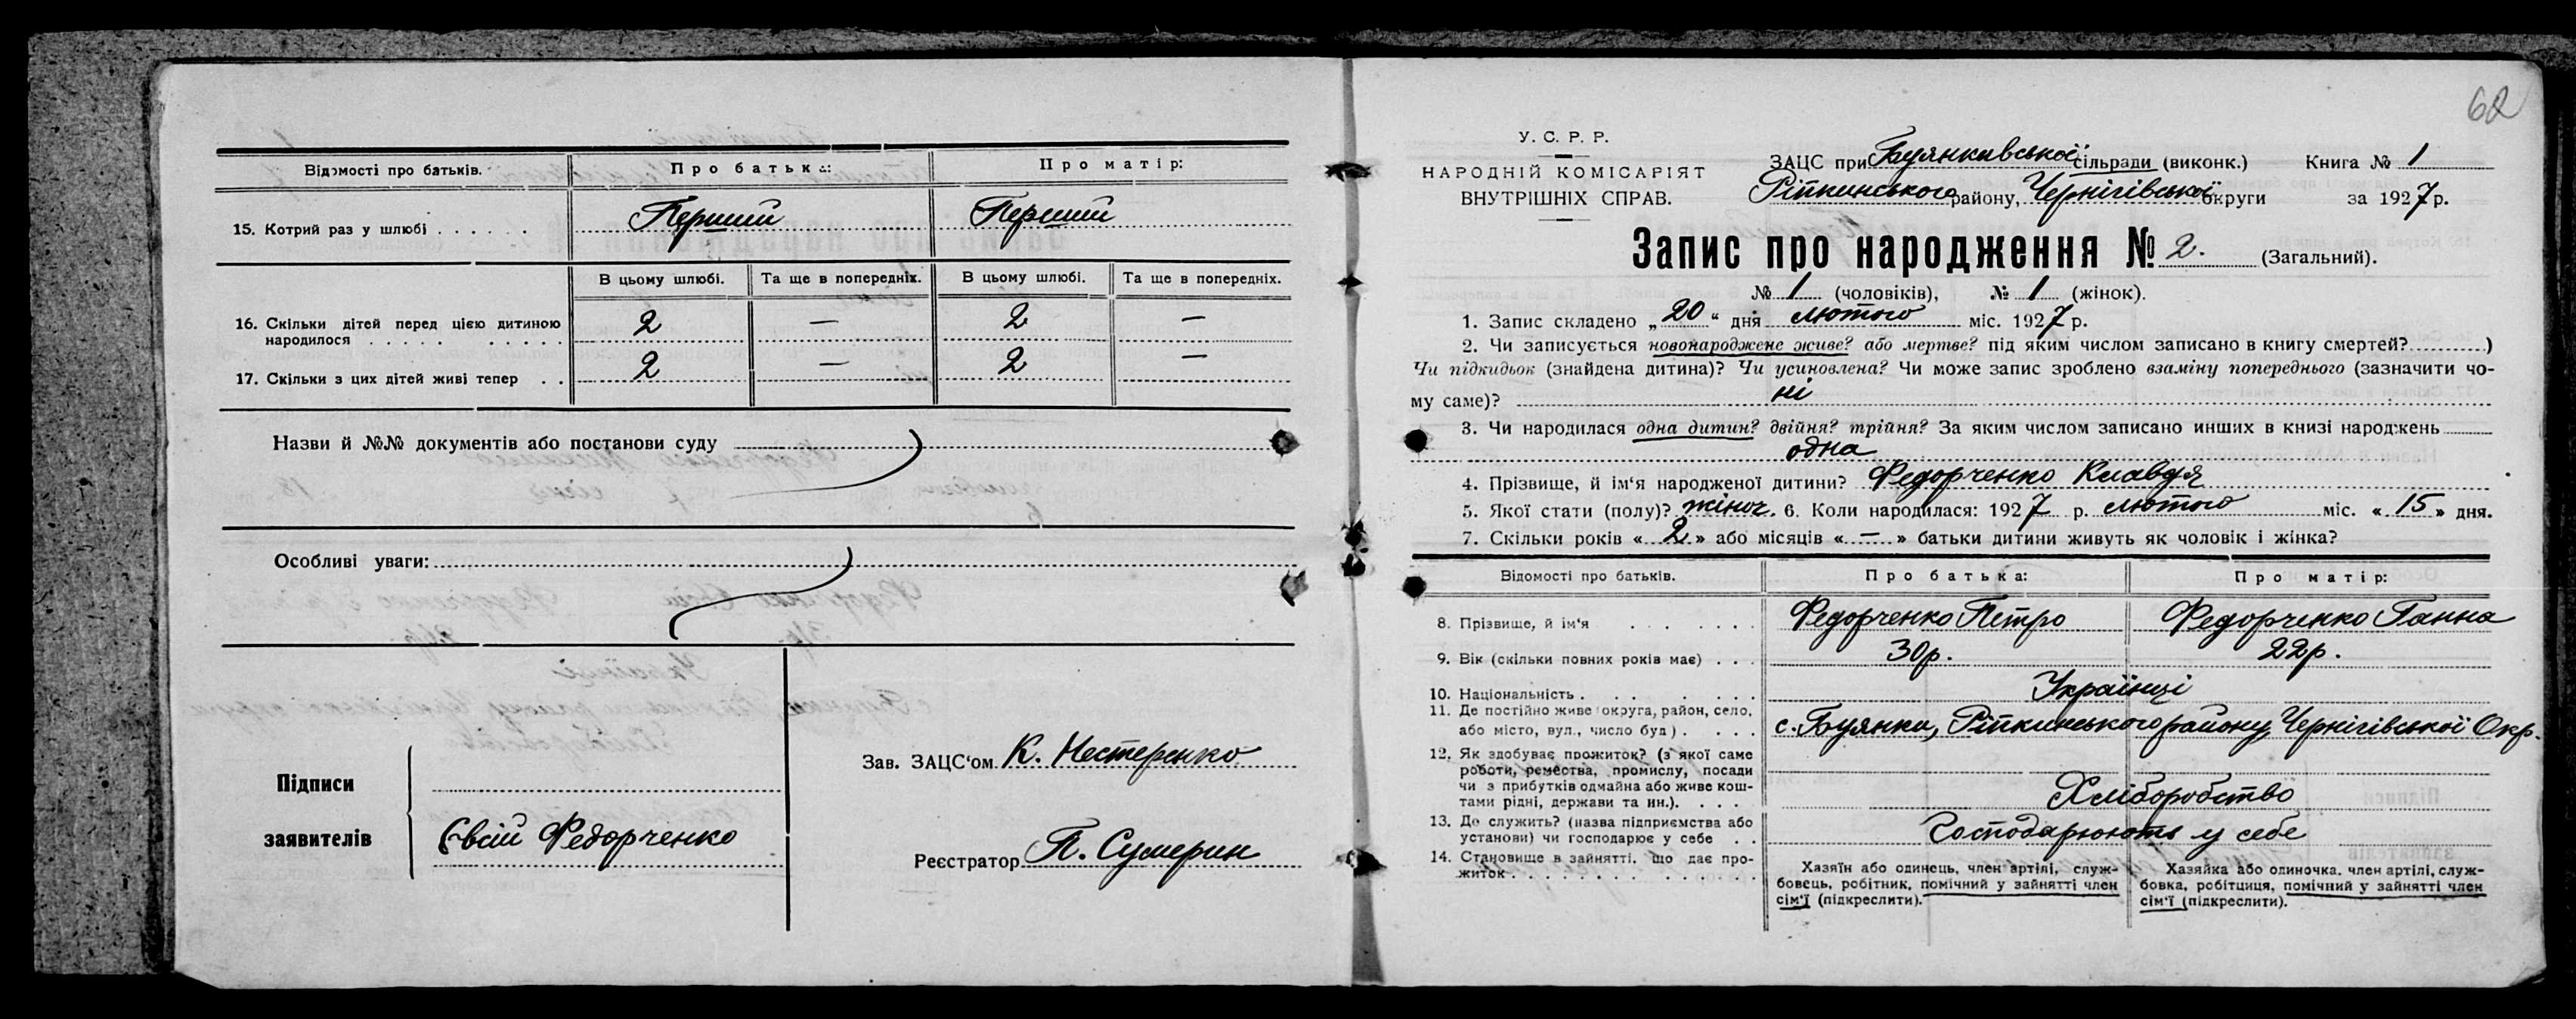 Відомості про батьків. Про батька: Про матір:
15. Котрий раз у шлюбі . . . . . . Перший Перший
В цьому шлюбі. Та ще в попередніх. В цьому шлюбі. Та ще в попередніх.
16. Скільки дітей перед цією дитиною
народилося . . . . . . . . . . 2 — 2 —
17. Скільки з цих дітей живі тепер . . 2 — 2 —
Назви й №№ документів або постанови суду
Особливі уваги:
Підписи
заявителів
Євсій Федорченко
Зав. ЗАЦС‘ом К. Нестеренко
Реєстратор П. Сумерин
62
У. С. Р. Р.
НАРОДНІЙ КОМІСАРІЯТ
ВНУТРІШНІХ СПРАВ.
ЗАЦС при Буянкивської сільради (виконк.) Книга № 1
Ріпкинського району, Чернігівської округи за 1927 р.
Запис про народження № 2. (Загальний).
№ 1 (чоловіків), № 1 (жінок).
1. Запис складено „20“ дня лютого міс. 1927 р.
2. Чи записується новонароджене живе? або мертве? під яким числом записано в книгу смертей?..........)
Чи підкидьок (знайдена дитина)? Чи усиновлена? Чи може запис зроблено взаміну попереднього (зазначити чо-
му саме)? ні
3. Чи народилася одна дитин? двійня? трійня? За яким числом записано инших в книзі народжень
одна
4. Прізвище, й ім‘я народженої дитини? Федорченко Клавдя
5. Якої стати (полу)? жіноч. 6. Коли народилася: 1927 р. лютого міс. « 15 » дня.
7. Скільки років « 2 » або місяців « — » батьки дитини живуть як чоловік і жінка?
Відомості про батьків. Про батька: Про матір:
8. Прізвище, й ім‘я . . . . . . Федорченко Петро Федорченко Ганна
9. Вік (скільки повних років має) . . . 30р. 22р.
10. Національність . . . . . . . Українці
11. Де постійно живе (округа, район, село,
або місто, вул., число буд) . . . . с. Буянки, Ріпкинського району, Чернігівської Окр.
12. Як здобуває прожиток? (з якої саме
роботи, ремества, промислу, посади
чи з прибутків одмайна або живе кош-
тами рідні, держави та ин.). . . . Хліборобство
13. Де служить? (назва підприємства або
установи) чи господарює у себе . . Господарюють у себе
14. Становище в зайнятті, що дає про-
житок . . . . . . . . . . . . . .
Хазяїн або одинець, член артілі, служ-
бовець, робітник, помічний у зайнятті член
сім‘ї (підкреслити).
Хазяйка або одиночка, член артілі, служ-
бовка, робітниця, помічний у зайнятті член
сім‘ї (підкреслити).